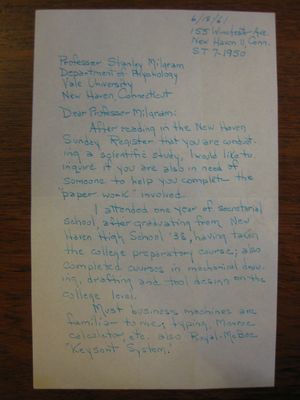 6/18/61
155 Winchester Ave.
New Haven 11, Conn.
ST. 7-1950
Professor Stanley Milgram
Department of Psychology
Yale University
New Haven, Connecticut
Dear Professor Milgram:
After reading in the New Haven
Sunday Register that you are conduct-
ing a scientific study, I would like to
inquire if you are also in need of
someone to help you complet the
"paper work" involved.
I attended one year of secretarial
school, after graduating from New
Haven High School '38, having taken
the college preparatory course; also
completed courses in mechanical draw-
ing, drafting and tool design on the
college level.
Most business machines are
familiar to me; typing, Monroe
calculator, etc. also Royal-McBee
"Keysort System."